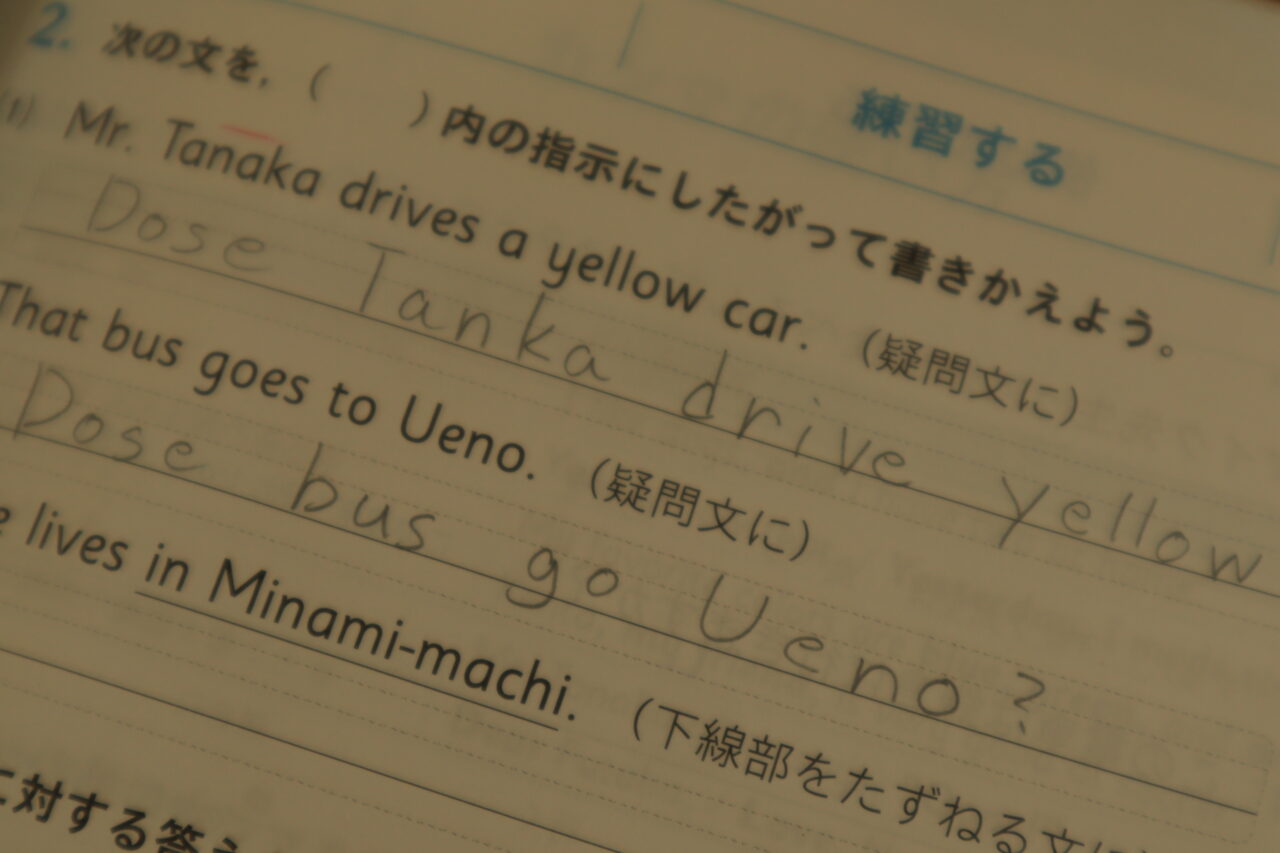 練習する
2. 次の文を,( )内の指示にしたがって書きかえよう。
(1) Mr. Tanaka drives a yellow car. (疑問文に)
Dose Tanka drive yellow
That bus goes to Ueno. (疑問文に)
Dose bus go Ueno?
lives in Minami-machi. (下線部をたずねる文に
に対する答え